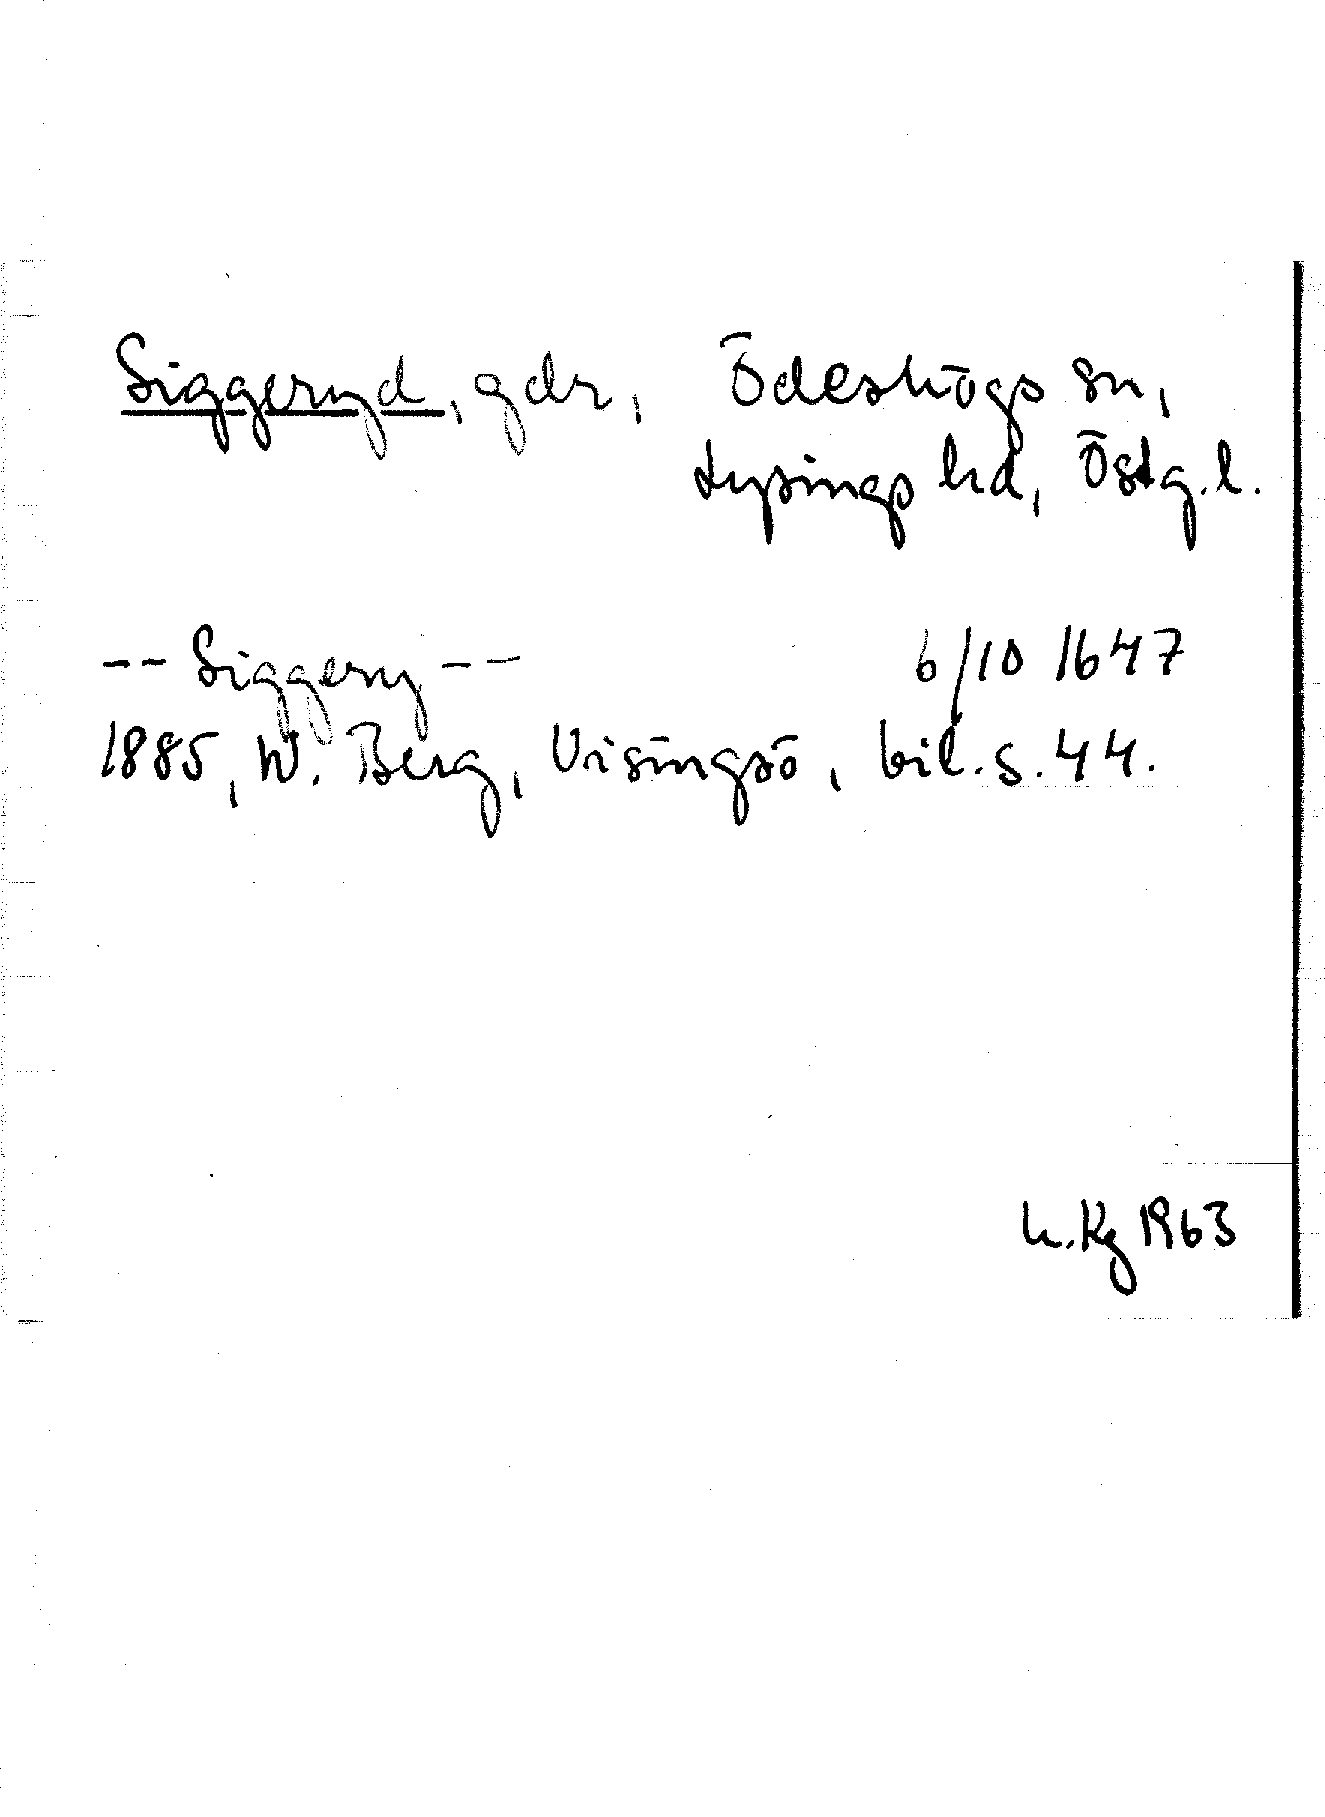 Siggeryd, gdr, Ödeshögs sn,
Lysings hd, Östg.l.
-- Siggery -- 6/10 1647
1885, W. Berg, Visingsö, bil. s. 44.
K.Kg 1963